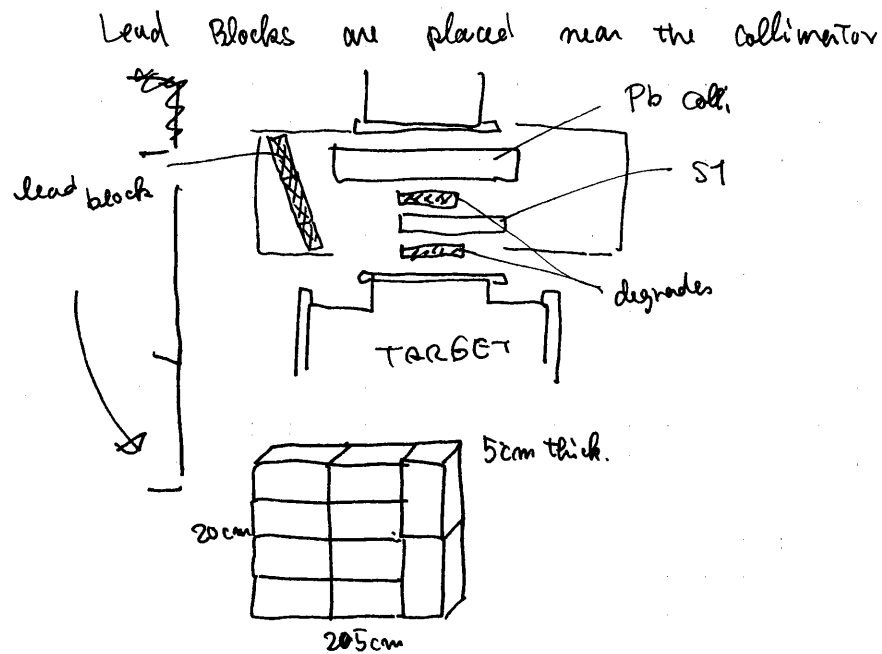 Lead Blocks are placed near the collimator
Pb coll.
S1
lead block
degrades
TARGET
5cm thick.
20cm
25cm